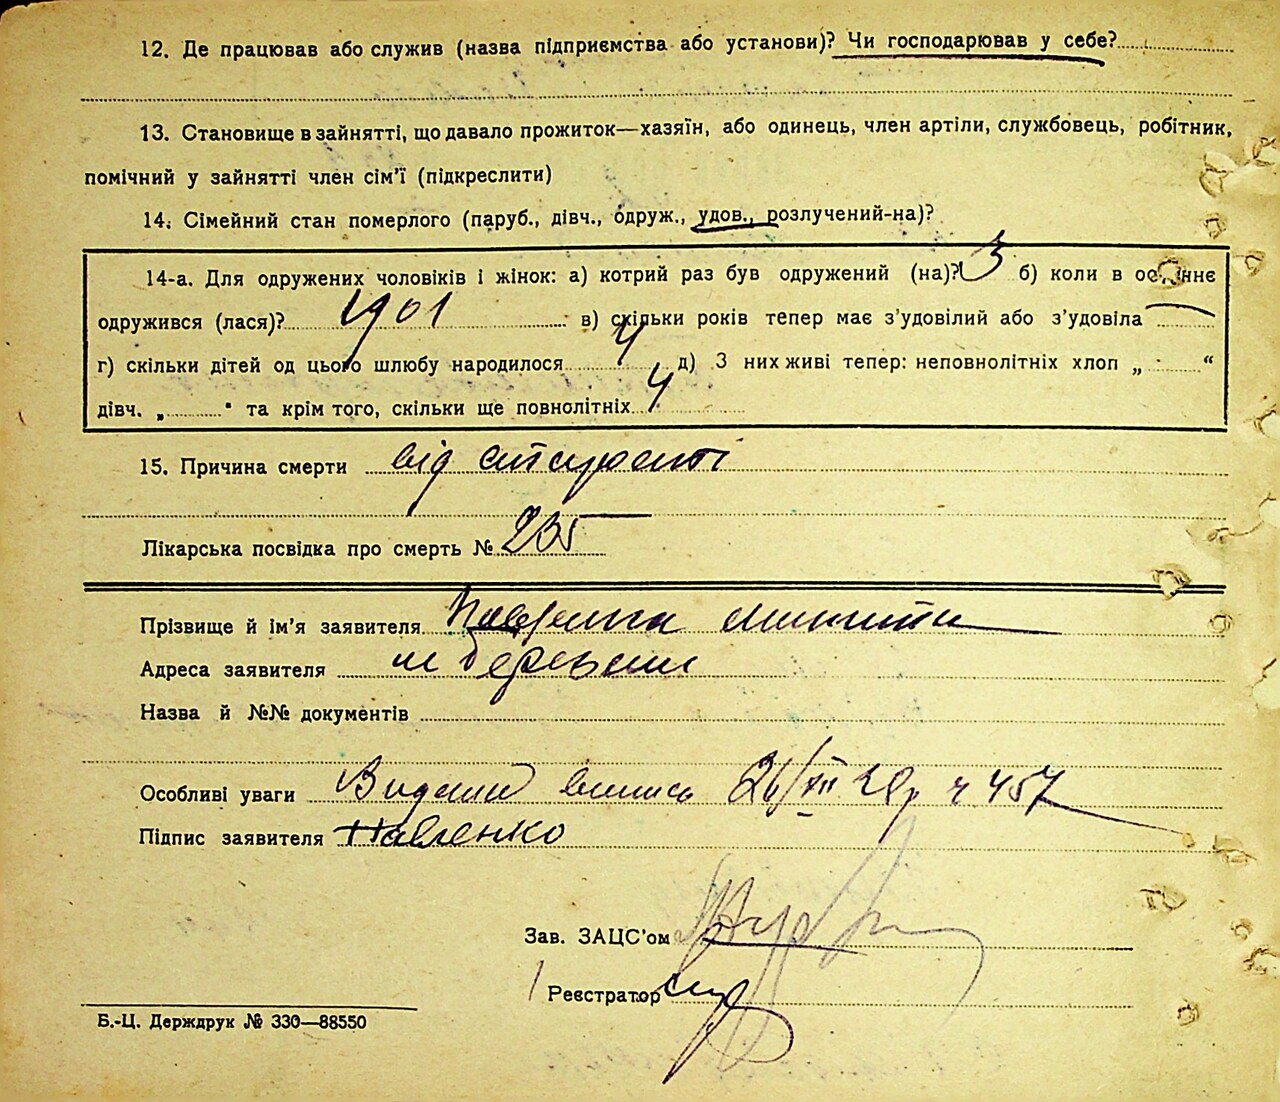 12. Де працював або служив (назва підприємства або установи)? Чи господарював у себе?
13. Становище в зайнятті, що давало прожиток—хазяїн, або одинець, член артіли, службовець, робітник,
помічний у зайнятті член сім'ї (підкреслити)
14. Сімейний стан померлого (паруб., дівч., одруж., удов., розлучений-на)?
14-а. Для одружених чоловіків і жінок: а) котрий раз був одружений (на)? 3 б) коли в останнє
одружився (лася)? 1901 в) скільки років тепер має з'удовілий або з'удовіла —
г) скільки дітей од цього шлюбу народилося 4 д) З них живі тепер: неповнолітніх хлоп „ “
дівч. „ “ та крім того, скільки ще повнолітніх 4
15. Причина смерти від старості
Лікарська посвідка про смерть № 235
Прізвище й ім'я заявителя Павленко Микита
Адреса заявителя м
Назва й №№ документів
Особливі уваги Виданий випись 26/XII 28р ч 457
Підпис заявителя Павленко
Зав. ЗАЦС'ом
Реєстратор
Б.-Ц. Держдрук № 330—88550